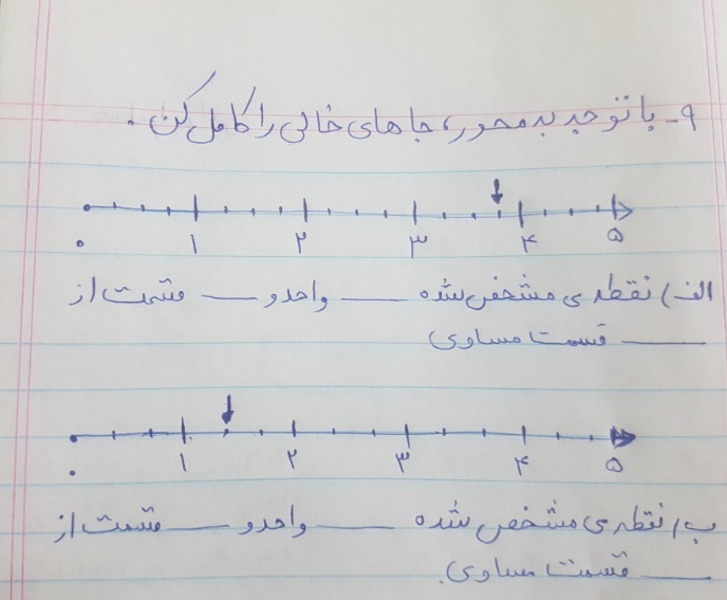 ۹- با توجه به محور، جاهای خالی را کامل کن.
۰ ۱ ۲ ۳ ۴ ۵
الف) نقطه ی مشخص شده ____ واحد و ____ قسمت از
____ قسمت مساوی
۰ ۱ ۲ ۳ ۴ ۵
ب) نقطه ی مشخص شده ____ واحد و ____ قسمت از
____ قسمت مساوی.